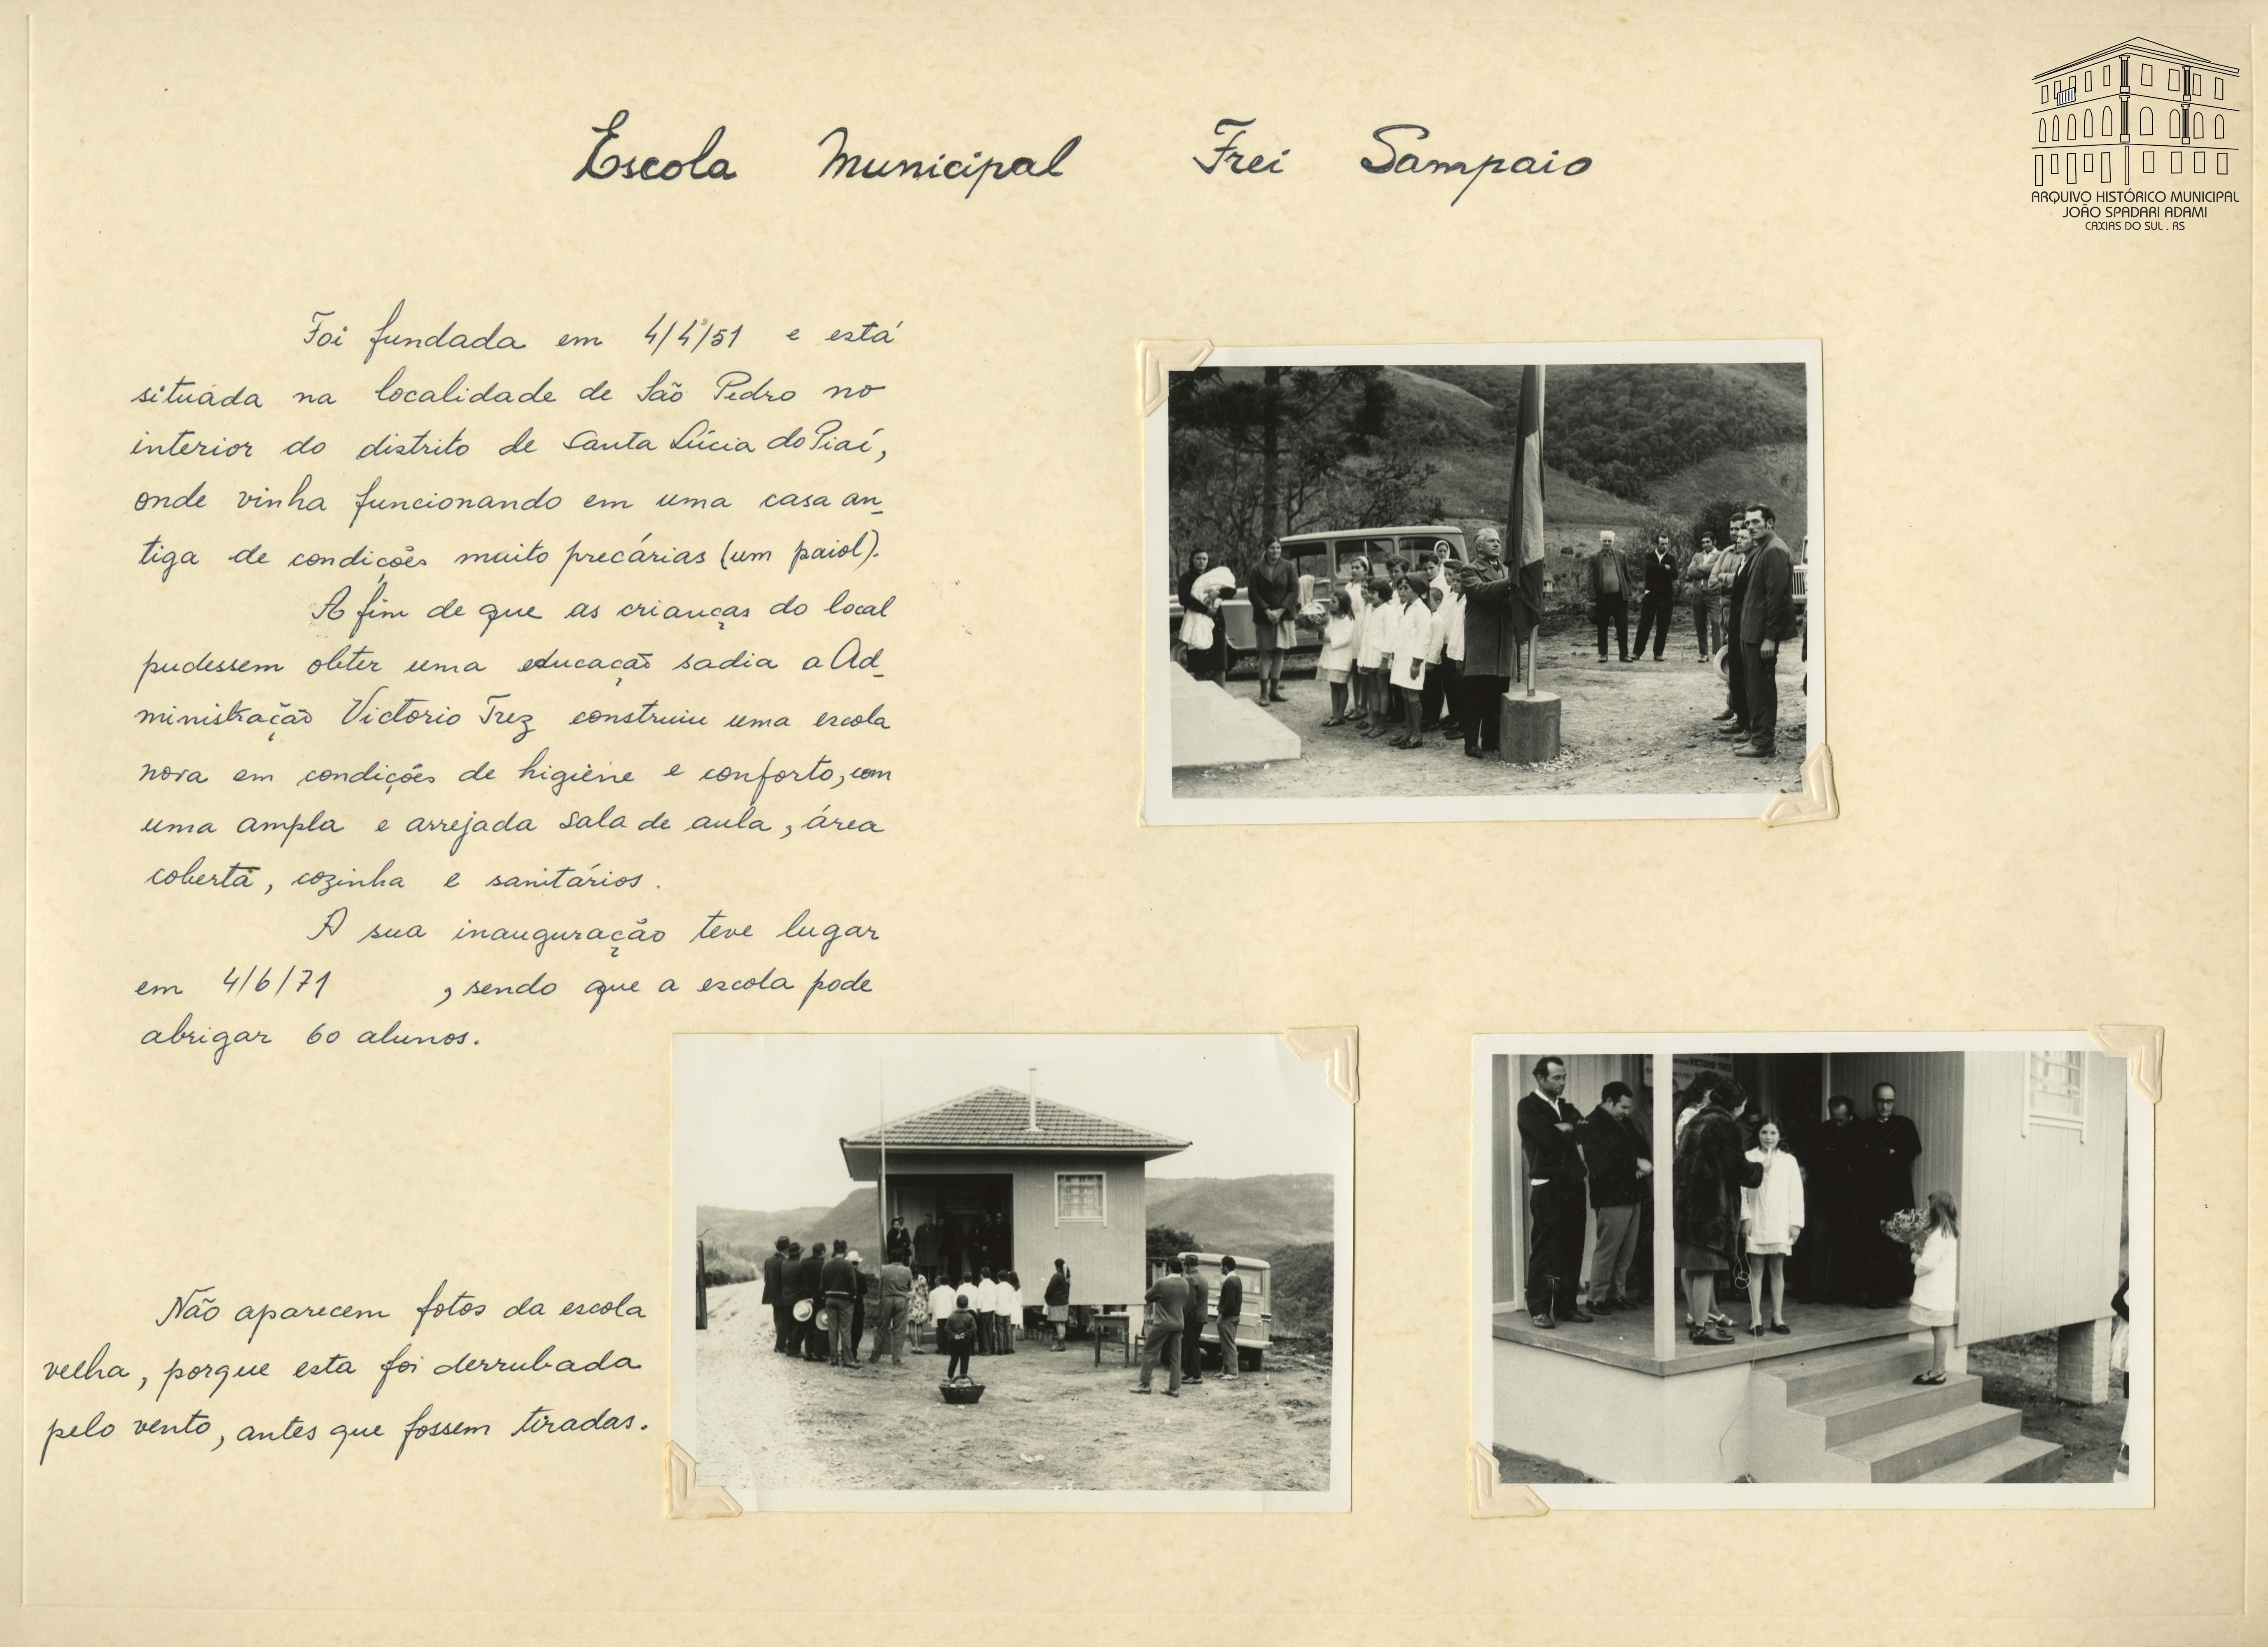 Escola Municipal Frei Sampaio
ARQUIVO HISTÓRICO MUNICIPAL
JOÃO SPADARI ADAMI
CAXIAS DO SUL . RS
Foi fundada em 4/4/51 e está
situada na localidade de São Pedro no
interior do distrito de Santa Lúcia do Piaí,
onde vinha funcionando em uma casa an-
tiga de condições muito precárias (um paiol).
A fim de que as crianças do local
pudessem obter uma educação sadia a Ad-
ministração Victorio Trez construiu uma escola
nova em condições de higiene e conforto, com
uma ampla e arrejada sala de aula, área
coberta, cozinha e sanitários.
A sua inauguração teve lugar
em 4/6/71 , sendo que a escola pode
abrigar 60 alunos.
Não aparecem fotos da escola
velha, porque esta foi derrubada
pelo vento, antes que fossem tiradas.